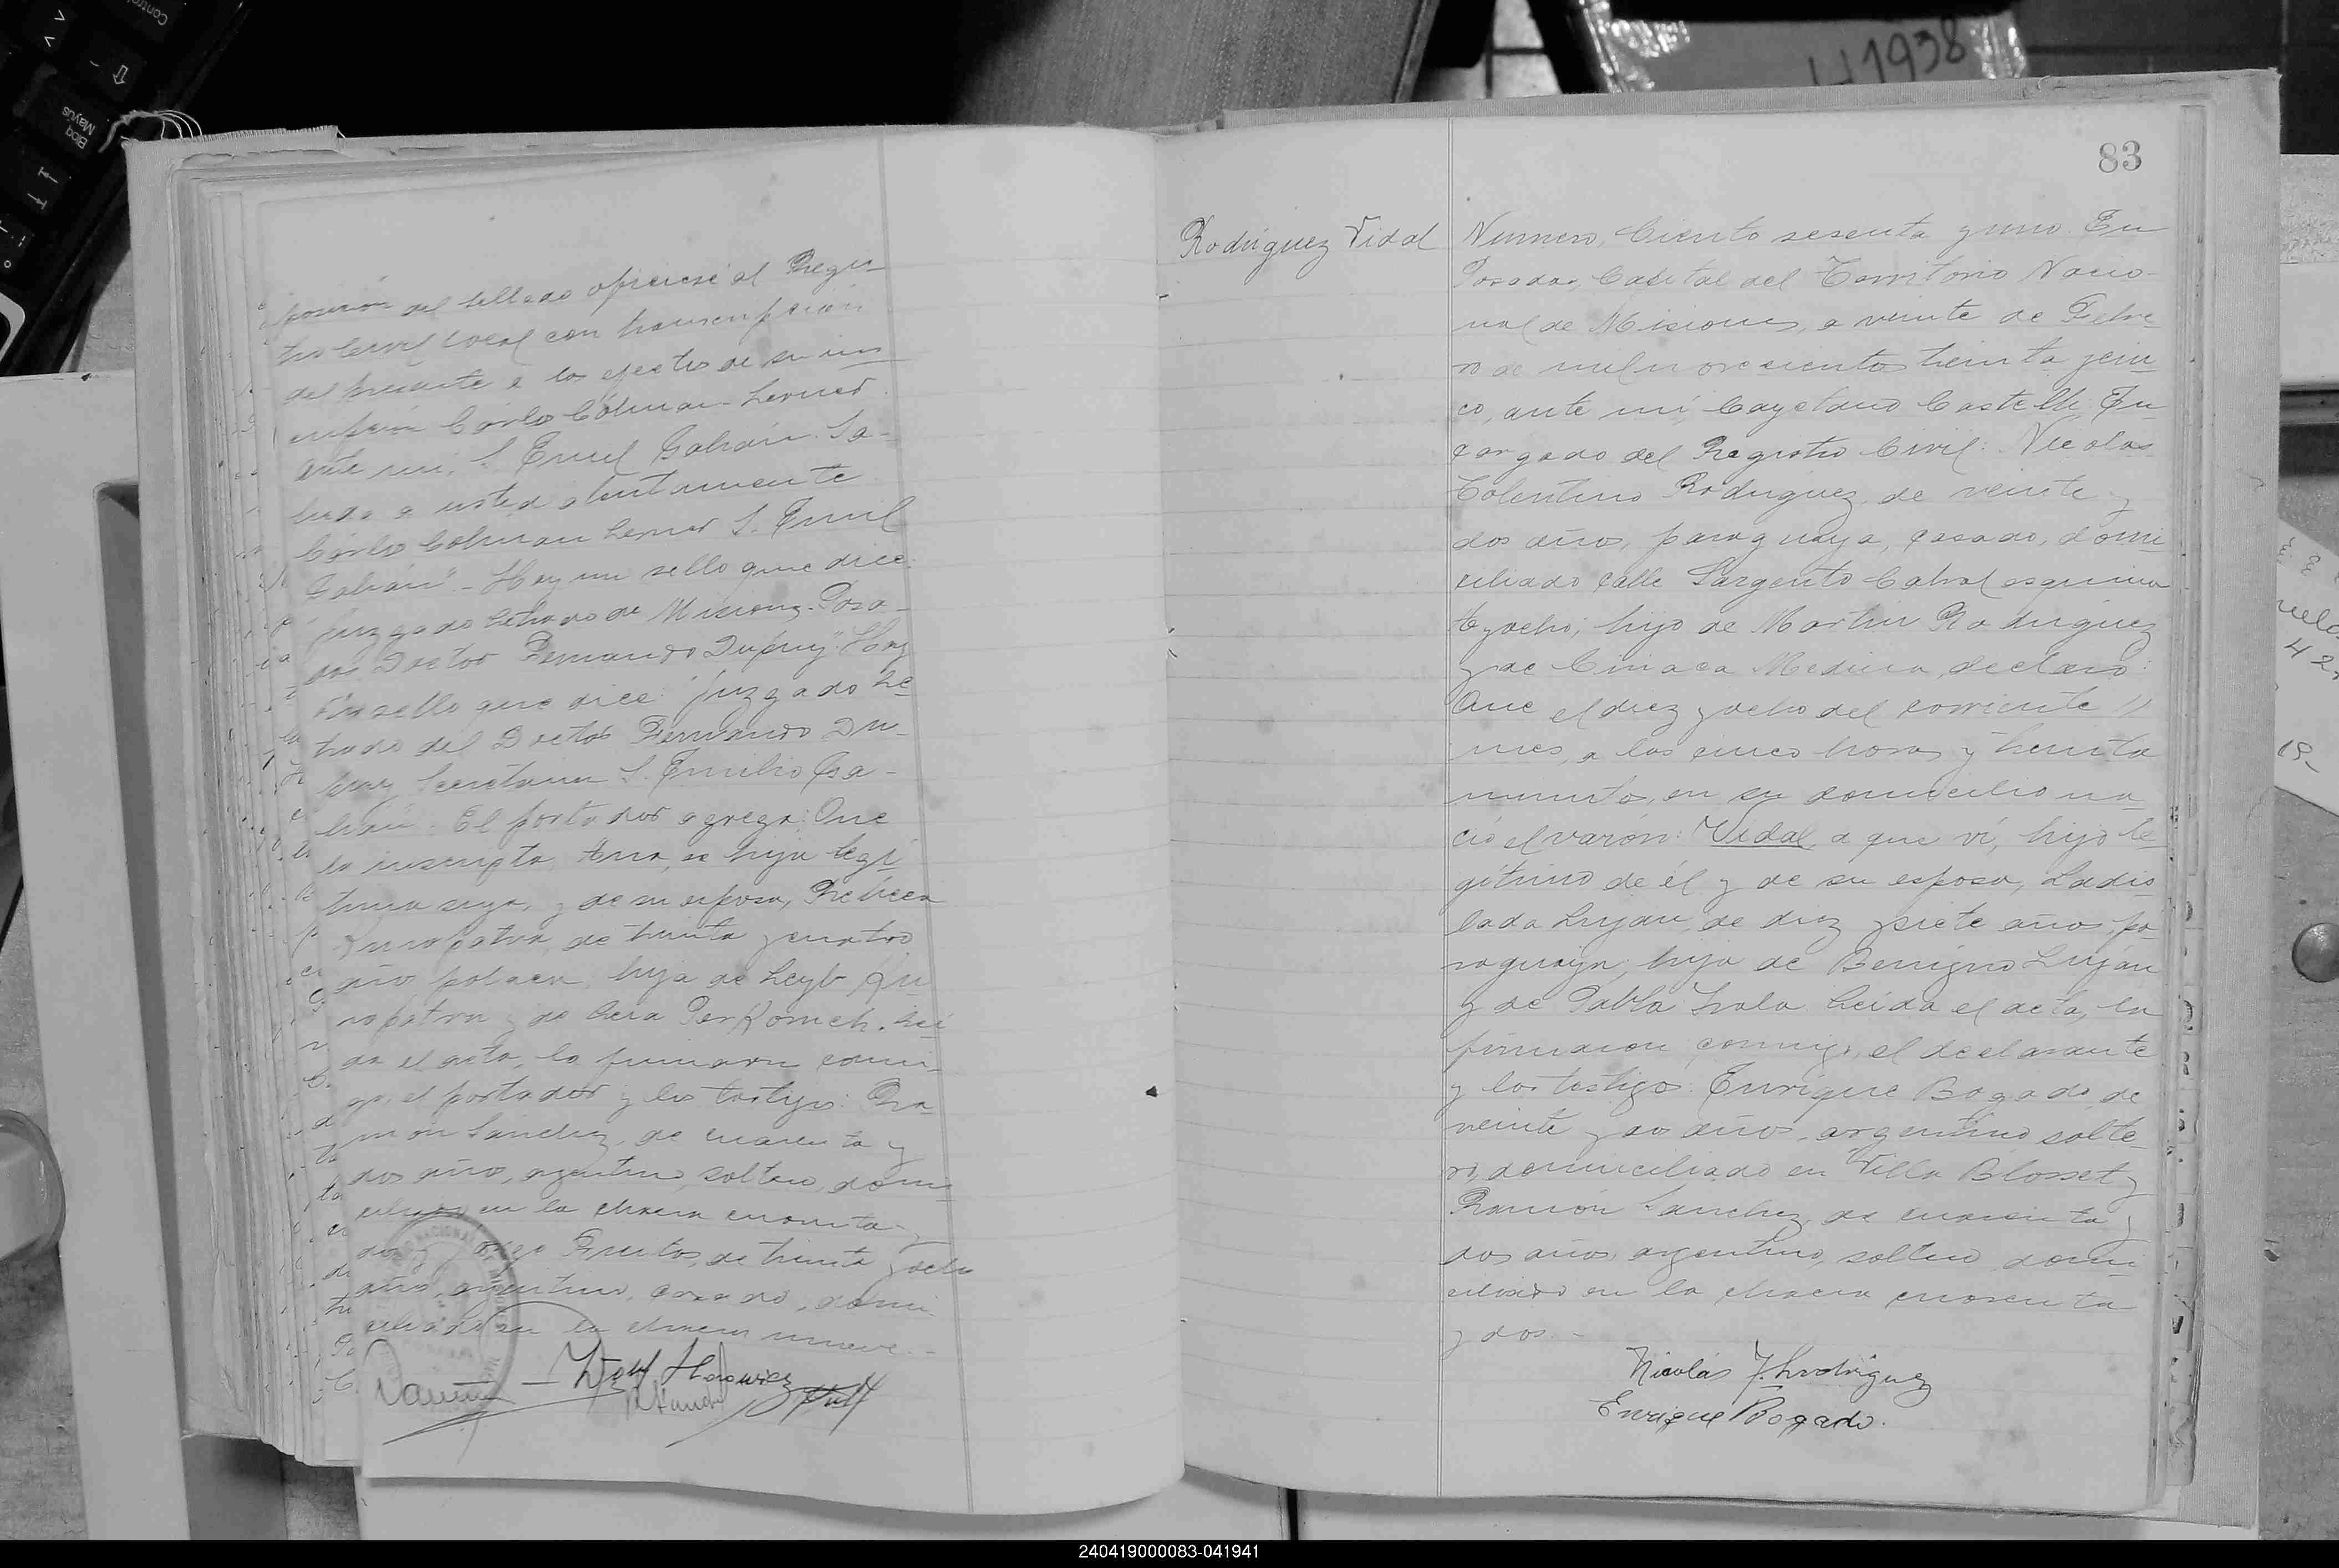 H1938
posición del sellado ofíciese al Regis-
tro Civil local con transcripción
del presente a los efectos de su ins
cripción Carlos Colman Lerner.
ante mi, S. Emil Galián. Sa-
luda a usted atentamente
Carlos Colman Lerner S. Emil
Galián" - Hay un sello que dice
"Juzgado Letrado de Misiones. Posa-
das Doctor Fernando Dupuy" Hay
un sello que dice: "Juzgado Le
trado del Doctor Fernando Du-
puy Secretaria S. Emilio Ga-
lián". El portador agrega: Que
la inscripta Ana, es hija legí
tima suya, y de su esposa, Rebeca
de treinta y cuatro
años polaca, hija de Leyb
y de
da el acta, la firmaron conmi-
go, el portador y los testigos: Ra
món Sánchez, de cuarenta y
dos años, argentino, soltero, domi-
ciliado en la chacra cuarenta y
dos y Fruitos, de treinta y ocho
años, argentino, casado, domi-
ciliado en la chacra nueve. -
83
Rodríguez Vidal
Numero, Ciento sesenta y uno. En
Posadas, Capital del Territorio Nacio-
nal de Misiones, a veinte de Febre-
ro de mil novecientos treinta y cin
co, ante mí, Cayetano Castelli, En
cargado del Registro Civil: Nicolas
Tolentino Rodríguez, de veinte y
dos años, paraguayo, casado, domi
ciliado calle Sargento Cabral esquina
Ayacucho, hijo de Martín Rodríguez
y de Ciriaca Medina, declaró:
Que el diez y ocho del corriente //
mes, a las cinco horas y treinta
minutos, en su domicilio na
ció el varón: Vidal, a que ví, hijo le
gítimo de él y de su esposa, Ladis
lada Luján, de diez y siete años, pa-
raguaya, hija de Benigno Luján
y de Pabla Irala. Leída el acta, la
firmaron conmigo, el declarante
y los testigos: Enrique Bogado, de
veinte y dos años, argentino solte-
ro, domiciliado en Villa Blosset y
Ramón Sánchez, de cuarenta y
dos años, argentino, soltero domi-
ciliado en la chacra cuarenta
y dos. -
Nicolás T. Rodríguez
Enrique Bogado.
240419000083-041941